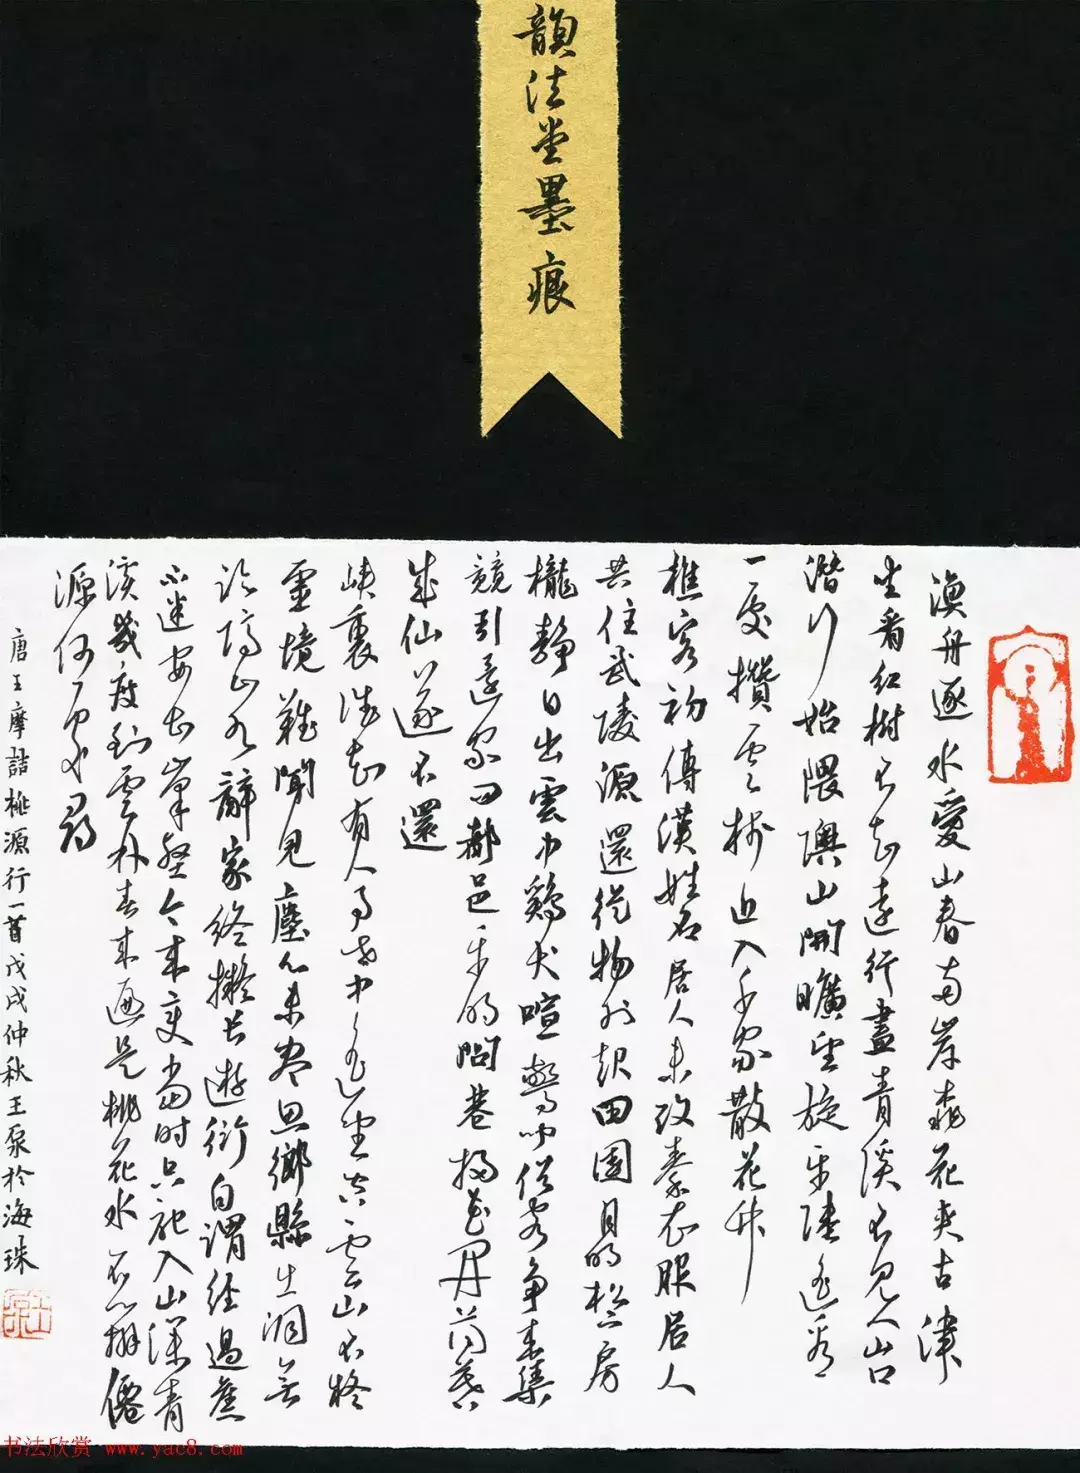 韻法堂墨痕
漁舟逐水愛山春兩岸桃花夾古津
坐看紅樹不知遠行盡青溪不見人山口
潛行始隈隩山開曠望旋平陸遙看
一處攢雲樹近入千家散花竹
樵客初傳漢姓名居人未改秦衣服居人
共住武陵源還從物外起田園月明松下房
櫳靜日出雲中鷄犬喧驚聞俗客爭來集
競引還家問都邑平明閭巷掃花開薄暮
成仙遂不還
峽裏誰知有人事世中遙望空雲山不疑
靈境難聞見塵心未盡思鄉縣出洞無
論隔山水辭家終擬長遊衍自謂經過舊
不迷安知峯壑今來變當時只記入山深青
溪幾度到雲林春來遍是桃花水不辨僊
源何處尋
唐王摩詰桃源行一首戊戌仲秋王泵於海珠
书法欣赏 www.yac8.com